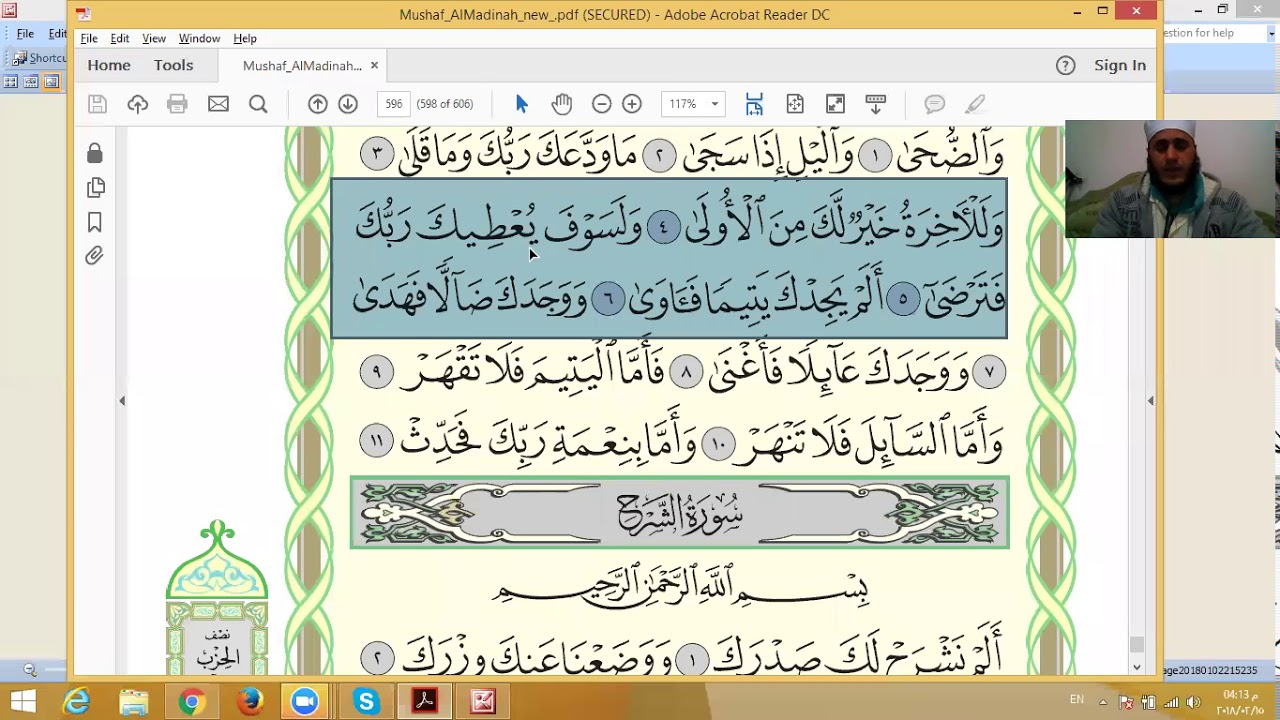 Mushaf_AlMadinah_new_.pdf (SECURED) - Adobe Acrobat Reader DC
File Edit
File Edit View Window Help
estion for help
Shortcu
Home Tools Mushaf_AlMadinah... × Sign In
596 (598 of 606) 117%
وَٱلضُّحَىٰ ١ وَٱلَّيْلِ إِذَا سَجَىٰ ٢ مَا وَدَّعَكَ رَبُّكَ وَمَا قَلَىٰ ٣
وَلَلْـَٔاخِرَةُ خَيْرٌ لَّكَ مِنَ ٱلْأُولَىٰ ٤ وَلَسَوْفَ يُعْطِيكَ رَبُّكَ
فَتَرْضَىٰٓ ٥ أَلَمْ يَجِدْكَ يَتِيمًا فَـَٔاوَىٰ ٦ وَوَجَدَكَ ضَآلًّا فَهَدَىٰ
٧ وَوَجَدَكَ عَآئِلًا فَأَغْنَىٰ ٨ فَأَمَّا ٱلْيَتِيمَ فَلَا تَقْهَرْ ٩
وَأَمَّا ٱلسَّآئِلَ فَلَا تَنْهَرْ ١٠ وَأَمَّا بِنِعْمَةِ رَبِّكَ فَحَدِّثْ ١١
سُورَةُ الشَّرْحِ
بِسْمِ ٱللَّهِ ٱلرَّحْمَٰنِ ٱلرَّحِيمِ
أَلَمْ نَشْرَحْ لَكَ صَدْرَكَ ١ وَوَضَعْنَا عَنكَ وِزْرَكَ ٢
نصف
الحزب
age20180102215235
EN
04:13 م
٢٠١٨/٠٢/١٥